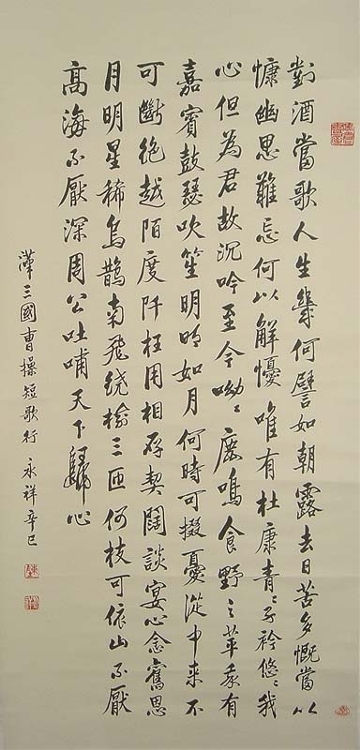 對酒當歌人生幾何譬如朝露去日苦多慨當以
慷幽思難忘何以解憂唯有杜康青〻子衿悠〻我
心但為君故沉吟至今呦〻鹿鳴食野之苹我有
嘉賓鼓瑟吹笙明明如月何時可掇憂從中來不
可斷絕越陌度阡枉用相存契闊談宴心念舊恩
月明星稀烏鵲南飛繞樹三匝何枝可依山不厭
高海不厭深周公吐哺天下歸心
漢三國曹操短歌行 永祥辛巳